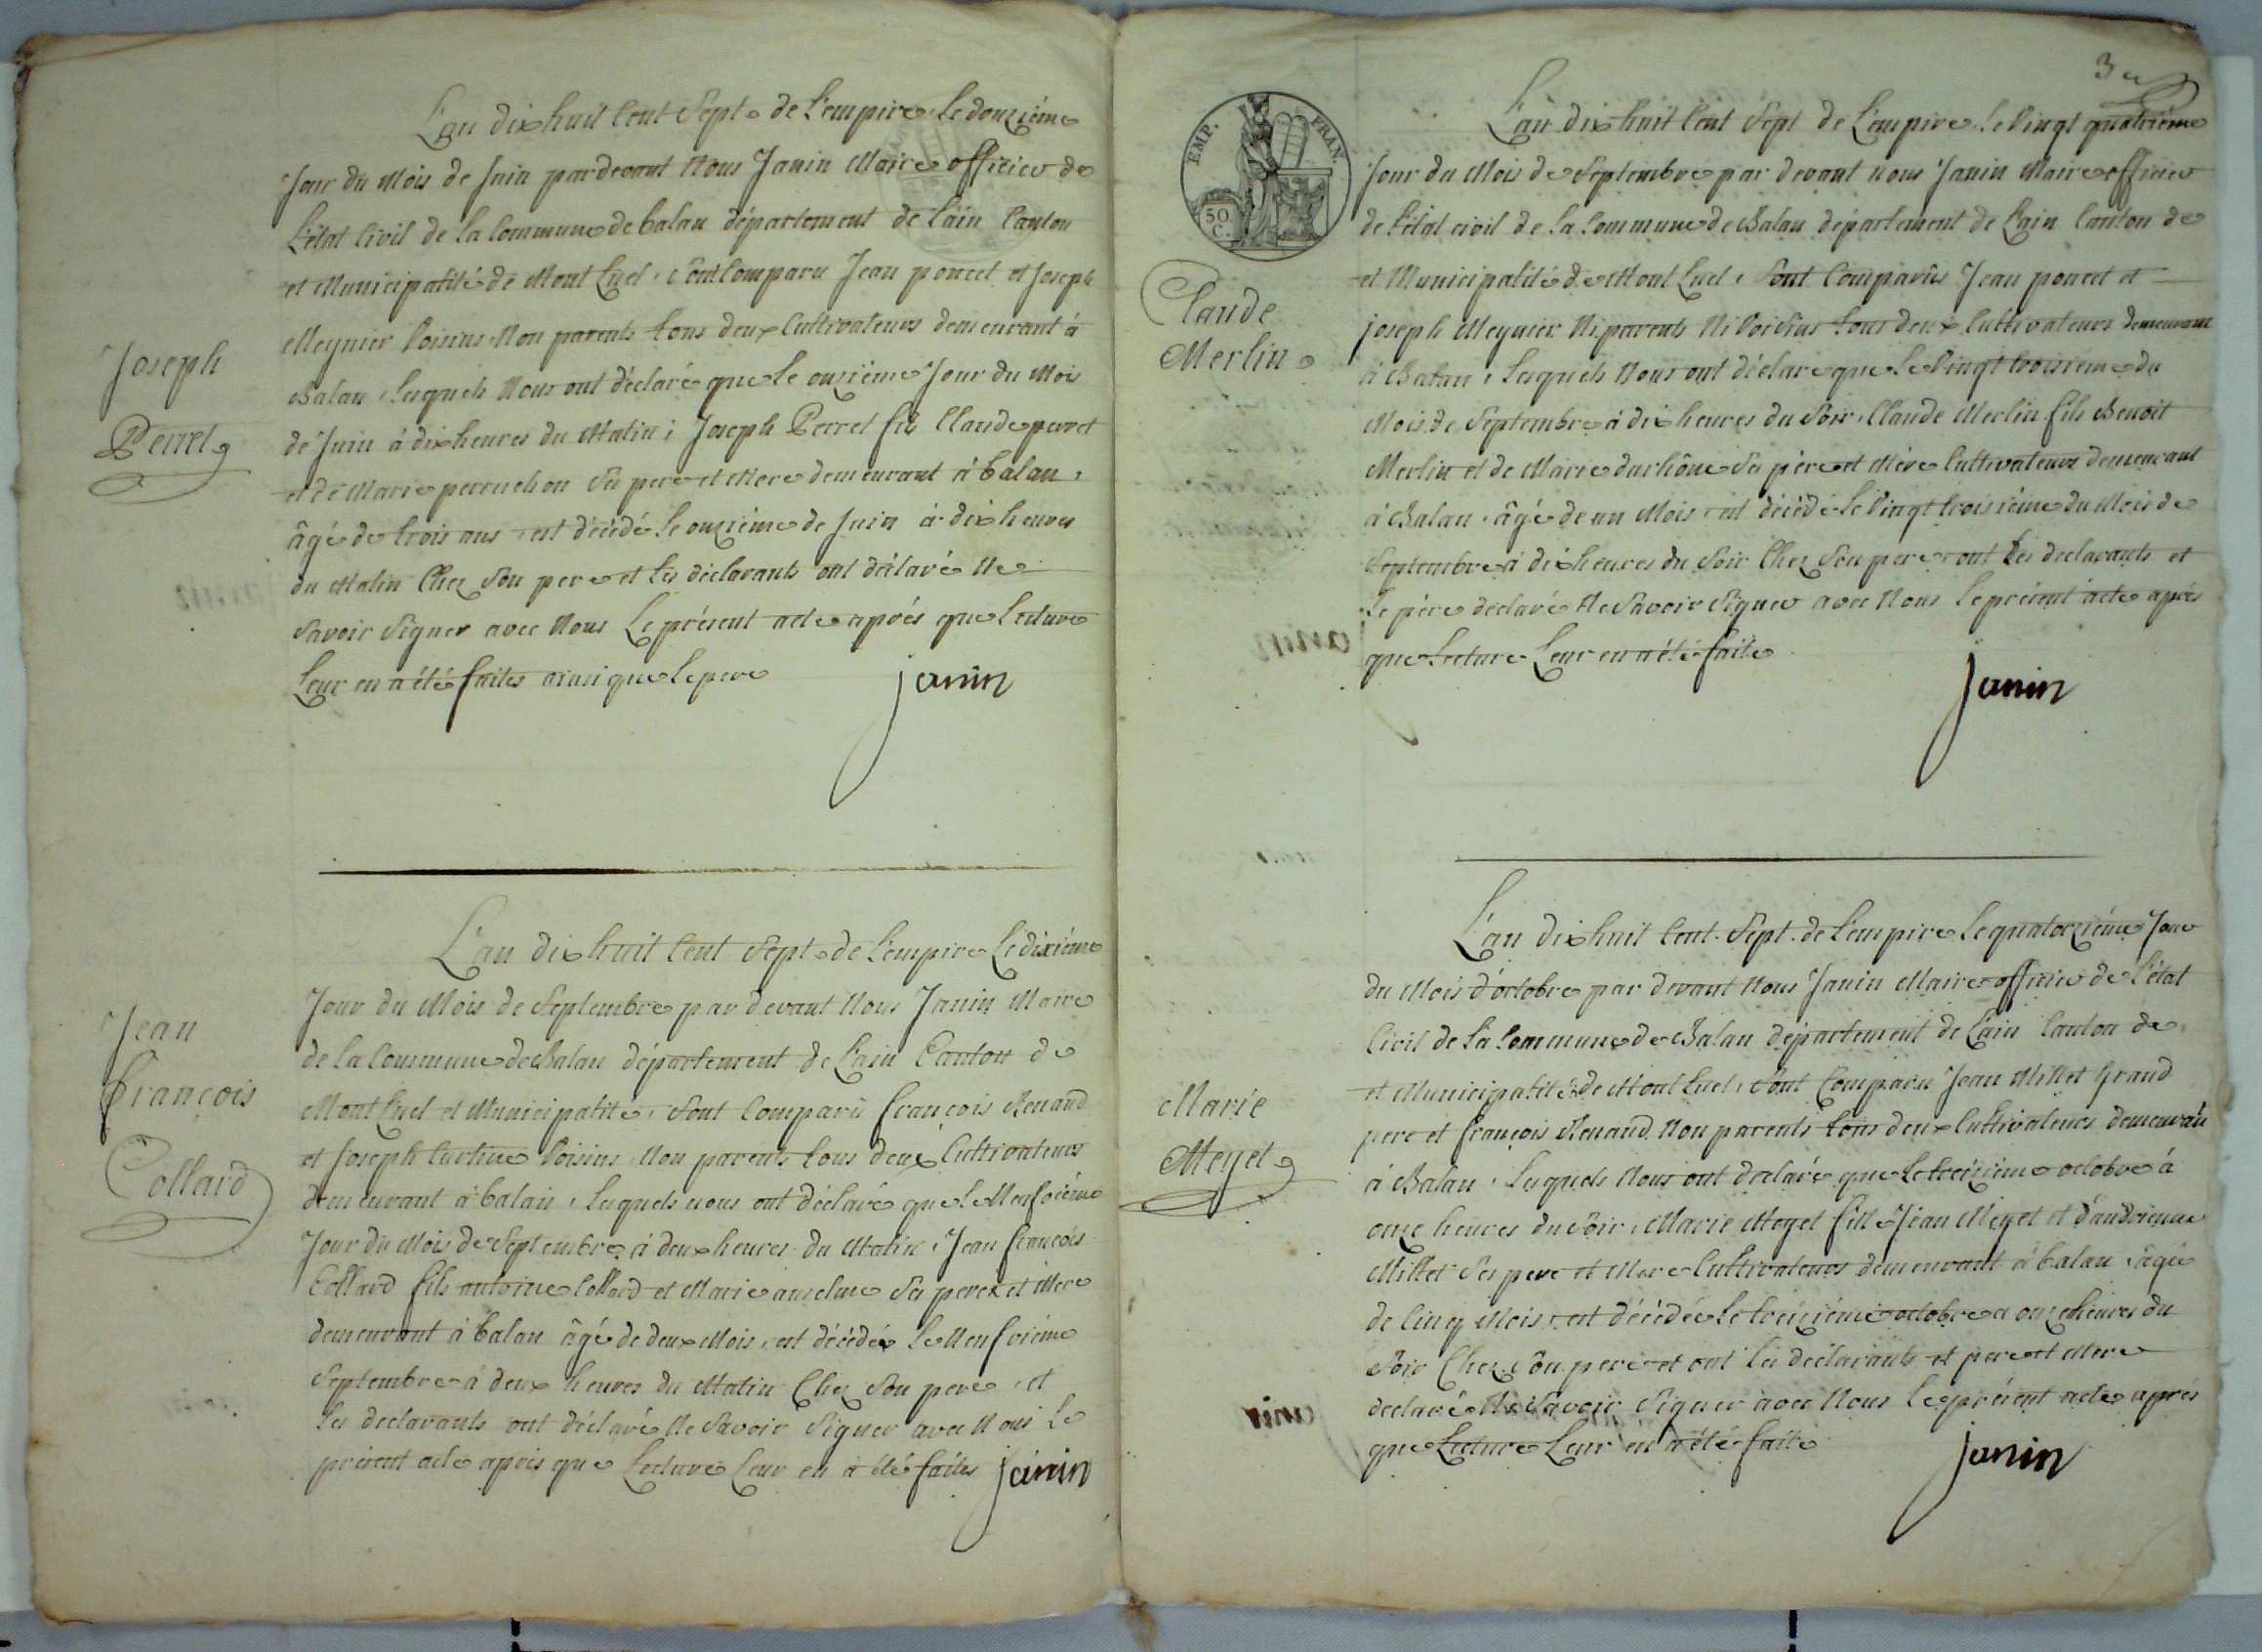 Joseph
Perret
L'an dix huit Cent Sept de L'empire Le douzième
Jour du Mois de Juin pardevant Nous Janin Maire officier de
L'état Civil de la Commune de balan département de L'ain Canton
et Municipalité de Mont Luel, Sont Comparu Jean poncet et Joseph
Meynier Voisins Non parents tous deux Cultivateurs demeurant à
Balan, Lesquels Nous ont déclaré que Le onzième Jour du Mois
de Juin à dix heures du Matin; Joseph Perret fils Claude perret
et de Marie peronchon Ses pere et Mere demeurant à balan,
âgé de trois ans est décédé Le onzième de Juin à dix heures
du Matin Chez Son pere et Les déclarants ont déclaré Ne
Savoir Signer avec Nous Le présent acte après que Lecture
Leur en a été faites ainsi que Le pere
janin
Jean
François
Collard
L'an dix huit Cent Sept de L'empire Le dixième
Jour du Mois de Septembre par devant Nous Janin Maire
de la Commune de Balan département de L'ain Canton de
Mont Luel et Municipalité, Sont Comparu François Renand
et Joseph Voisins Non parents tous deux Cultivateurs
demeurant à balan, Lesquels nous ont déclaré que Le Neufvième
Jour du Mois de Septembre à deux heures du Matin, Jean françois
Collard fils antoine Collard et Marie anselme Ses pere et Mere
demeurant à balan âgé de deux Mois, est décédé Le Neufvième
Septembre à deux heures du Matin Chez Son pere, et
Les declarants ont déclaré Ne Savoir Signer avec Nous Le
présent acte après que Lecture Leur en à été faites janin
3
EMP. FRAN.
50
C.
Claude
Merlin
L'an dix huit Cent Sept de L'empire Le Vingt quatrième
Jour du Mois de Septembre par devant nous Janin Maire officier
de L'état civil de la Commune de Balan département de L'ain Canton de
et Municipalité de Mont Luel, Sont Comparûs Jean poncet et
joseph Meynier Ni parents Ni Voisins tous deux Cultivateurs demeurant
à Balan, Lesquels Nous ont déclaré que Le Vingt troisième du
Mois de Septembre à dix heures du Soir, Claude Merlin fils Benoit
Merlin et de Marie durhône Ses père et Mère Cultivateurs demeurant
à Balan, âgé de un Mois est décédé Le Vingt troisième du Mois de
Septembre à dix heures du Soir Chez Son pere ont Les declarants et
Le père declaré Ne Savoir Signer avec Nous Le présent acte après
que Lecture Leur en a été faite
janin
Marie
Meyet
L'an dix huit Cent Sept de L'empire Le quatorzième Jour
du Mois d'octobre par devant Nous Janin Maire officier de L'état
Civil de la Commune de Balan département de L'ain Canton de
et Municipalité de Mont Luel, Sont Comparu Jean Millet Grand
pere et françois Renand Non parents tous deux Cultivateurs demeuran
à Balan, Lesquels Nous ont declaré que Le treizième octobre à
onze heures du Soir, Marie Meyet fille Jean Meyet et d'andrienne
Millet Ses pere et Mere Cultivateurs demeurant à balan, agée
de Cinq Mois est décédée Le treizième octobre a onze heures du
Soir Chez Son pere et ont Les declarants et pere et Mere
declaré Ne Savoir Signer avec Nous Le présent acte après
que Lecture Leur en a été faite
janin